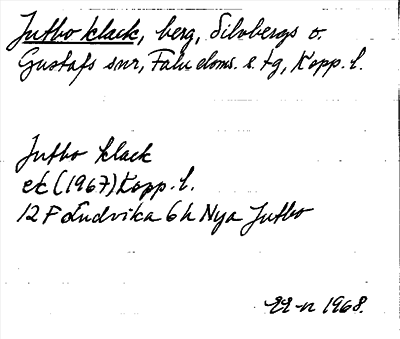 Jutbo klack, berg, Silvbergs o.
Gustafs snr, Falu doms. o. tg, Kopp. l.
Jutbo klack
ek (1967) Kopp. l.
12 F Ludvika 6 h Nya Jutbo
1968.